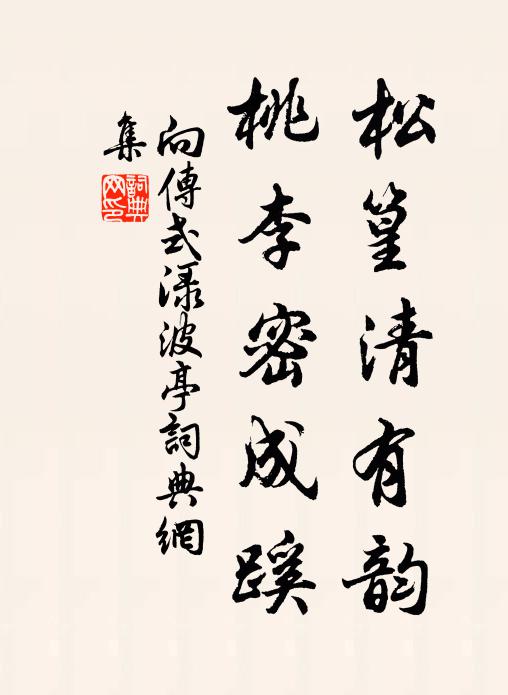 松篁清有韵
桃李密成蹊
向傳式淥波亭詞典網
集
詞典網印